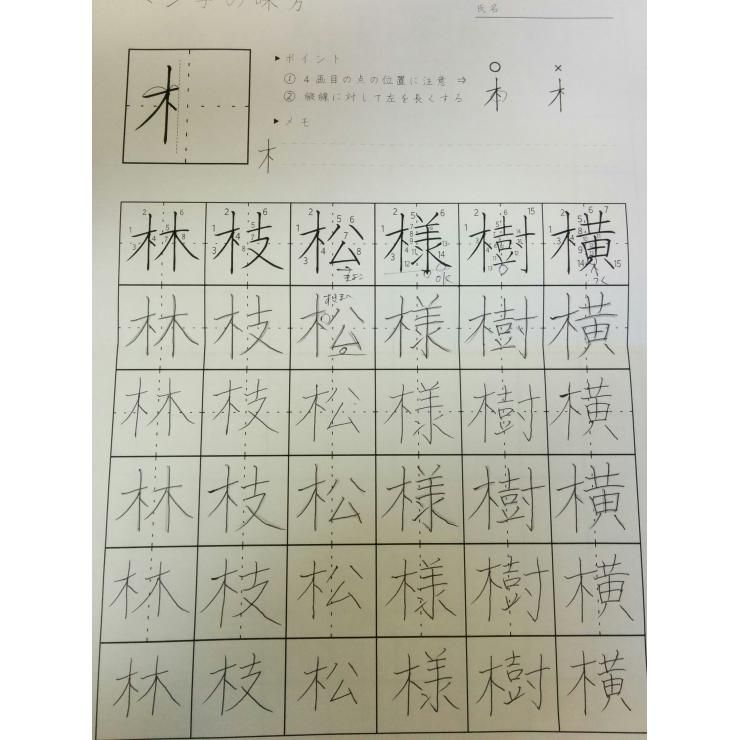 ペン字の味方
氏名
木
▶ポイント
① 4画目の点の位置に注意 ⇒
② 縦線に対して左を長くする
○ ×
木 木
▶メモ
木
林 枝 松 様 樹 横
OK
林 枝 松 様 樹 横
林 枝 松 様 樹 横
林 枝 松 様 樹 横
林 枝 松 様 樹 横
林 枝 松 様 樹 横